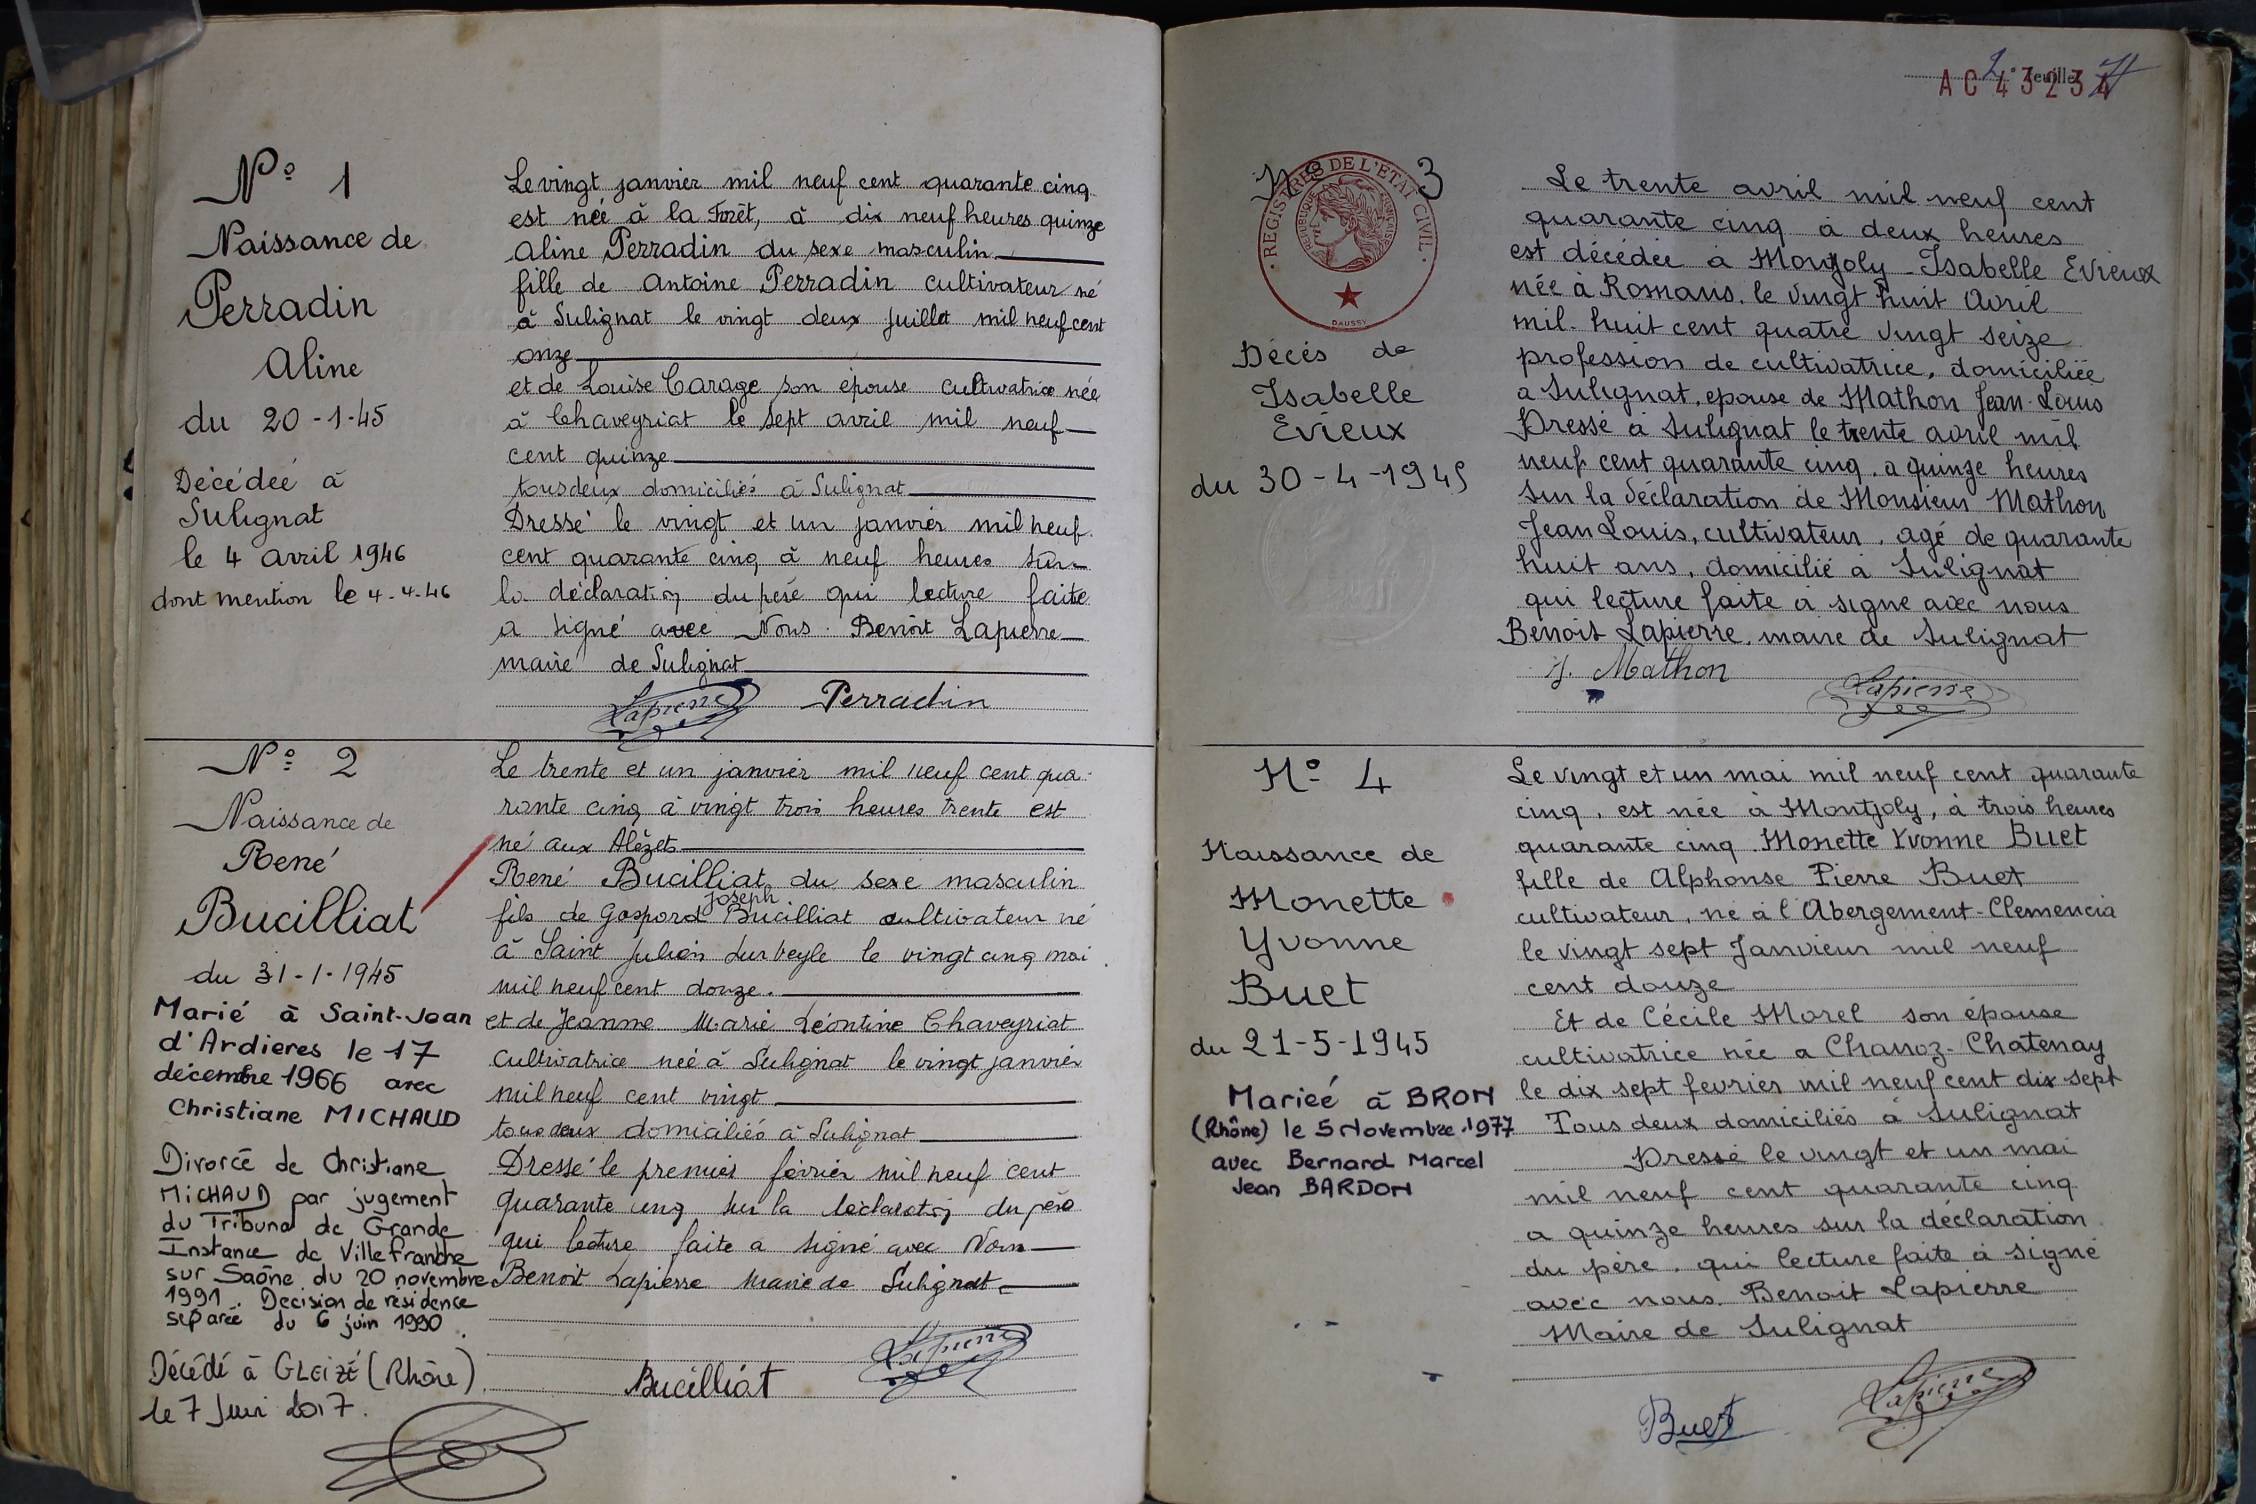 N° 1
Naissance de
Perradin
Aline
du 20-1-45
Décédée à
Sulignat
le 4 avril 1946
dont mention le 4.4.46
Le vingt janvier mil neuf cent quarante cinq
est née à la Forêt, à dix neuf heures quinze
Aline Perradin du sexe masculin
fille de Antoine Perradin cultivateur né
à Sulignat le vingt deux juillet mil neuf cent
onze
et de Louise Carage son épouse cultivatrice née
à Chaveyriat le sept avril mil neuf
cent quinze
tous deux domiciliés à Sulignat
Dressé le vingt et un janvier mil neuf
cent quarante cinq à neuf heures sur
la déclaration du père qui lecture faite
a signé avec Nous Benoît Lapierre
maire de Sulignat
Lapierre Perradin
N° 2
Naissance de
René
Bucilliat
du 31-1-1945
Marié à Saint-Jean
d'Ardieres le 17
décembre 1966 avec
Christiane MICHAUD
Divorcé de Christiane
MICHAUD par jugement
du Tribunal de Grande
Instance de Villefranche
sur Saône du 20 novembre
1991. Decision de résidence
séparée du 6 juin 1990.
Décédé à GLEIZÉ (Rhône)
le 7 Juin 2017.
Le trente et un janvier mil neuf cent qua-
rante cinq à vingt trois heures trente est
né aux Alézets
René Bucilliat du sexe masculin
joseph
fils de Gaspard Bucilliat cultivateur né
à Saint Julien sur Veyle le vingt cinq mai
mil neuf cent douze.
et de Jeanne Marie Léontine Chaveyriat
cultivatrice née à Sulignat le vingt janvier
mil neuf cent vingt
tous deux domiciliés à Sulignat
Dressé le premier février mil neuf cent
quarante cinq sur la déclaration du père
qui lecture faite a signé avec Nous
Benoit Lapierre Maire de Sulignat
Bucilliat Lapierre
2e feuillet
AC 43234
N° 3
REGISTRES DE L'ETAT CIVIL
REPUBLIQUE FRANÇAISE
DAUSSY
Décès de
Isabelle
Evieux
du 30-4-1945
Le trente avril mil neuf cent
quarante cinq à deux heures
est décédée à Montjoly Isabelle Evieux
née à Romans, le vingt huit Avril
mil huit cent quatre vingt seize
profession de cultivatrice, domiciliée
a Sulignat, epouse de Mathon Jean-Louis
Dressé à Sulignat le trente avril mil
neuf cent quarante cinq, a quinze heures
Sur la déclaration de Monsieur Mathon
Jean Louis, cultivateur, agé de quarante
huit ans, domicilié à Sulignat
qui lecture faite à signe avec nous
Benoit Lapierre, maire de Sulignat
J. Mathon Lapierre
N° 4
Naissance de
Monette
Yvonne
Buet
du 21-5-1945
Mariée à BRON
(Rhône) le 5 Novembre 1977
avec Bernard Marcel
Jean BARDON
Le vingt et un mai mil neuf cent quarante
cinq, est née à Montjoly, à trois heures
quarante cinq Monette Yvonne Buet
fille de Alphonse Pierre Buet
cultivateur, né à l'Abergement-Clemencia
le vingt sept Janvieur mil neuf
cent douze
Et de Cécile Morel son épouse
cultivatrice née a Chanoz-Chatenay
le dix sept fevrier mil neuf cent dix sept
Tous deux domiciliés à Sulignat
Dressé le vingt et un mai
mil neuf cent quarante cinq
a quinze heures sur la déclaration
du père, qui lecture faite à signé
avec nous. Benoit Lapierre
Maire de Sulignat
Buet Lapierre